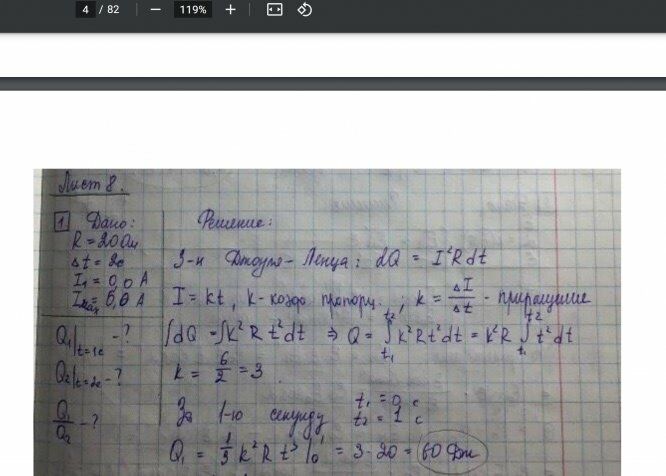 4 / 82 — 119% +
Лист 8.
1 Дано:
R = 20 Ом
Δt = 2с
I₁ = 0,0 А
Imax = 6,0 А
Q₁|t=1c - ?
Q₂|t=2c - ?
Q₁/Q₂ - ?
Решение:
З-н Джоуля-Ленца: dQ = I²Rdt
I = kt, k - коэф пропорц. ; k = ΔI/Δt - приращение
∫dQ = ∫k²Rt²dt ⇒ Q = ∫t₁t₂ k²Rt²dt = k²R ∫t₁t₂ t²dt
k = 6/2 = 3.
За 1-ю секунду t₁ = 0 c
t₂ = 1 c
Q₁ = 1/3 k²Rt³|₀¹ = 3·20 = 60 Дж